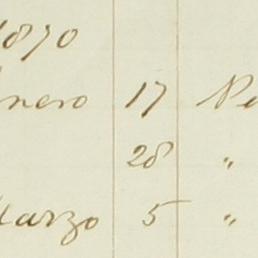 1870
Enero 17 Pe
28 "
Marzo 5 "